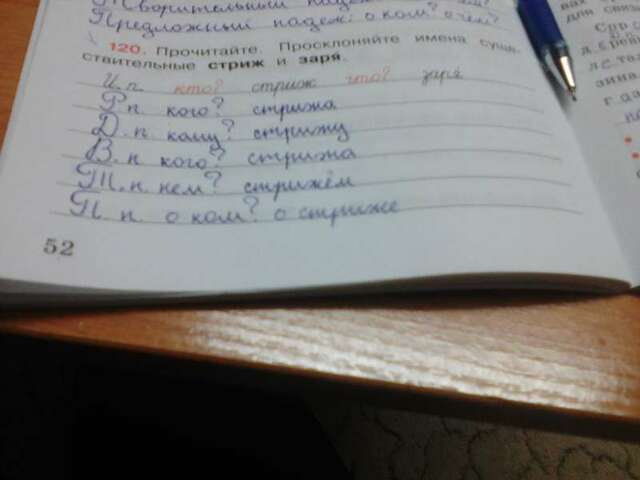 Творительный падеж:
Предложный падеж: о ком? о чём?
120. Прочитайте. Просклоняйте имена суще-
ствительные стриж и заря.
И. п. кто? стриж что? заря
Р. п. кого? стрижа
Д. п. кому? стрижу
В. п. кого? стрижа
Т. п. кем? стрижём
П. п. о ком? о стриже
52
вах
для свя
Спр